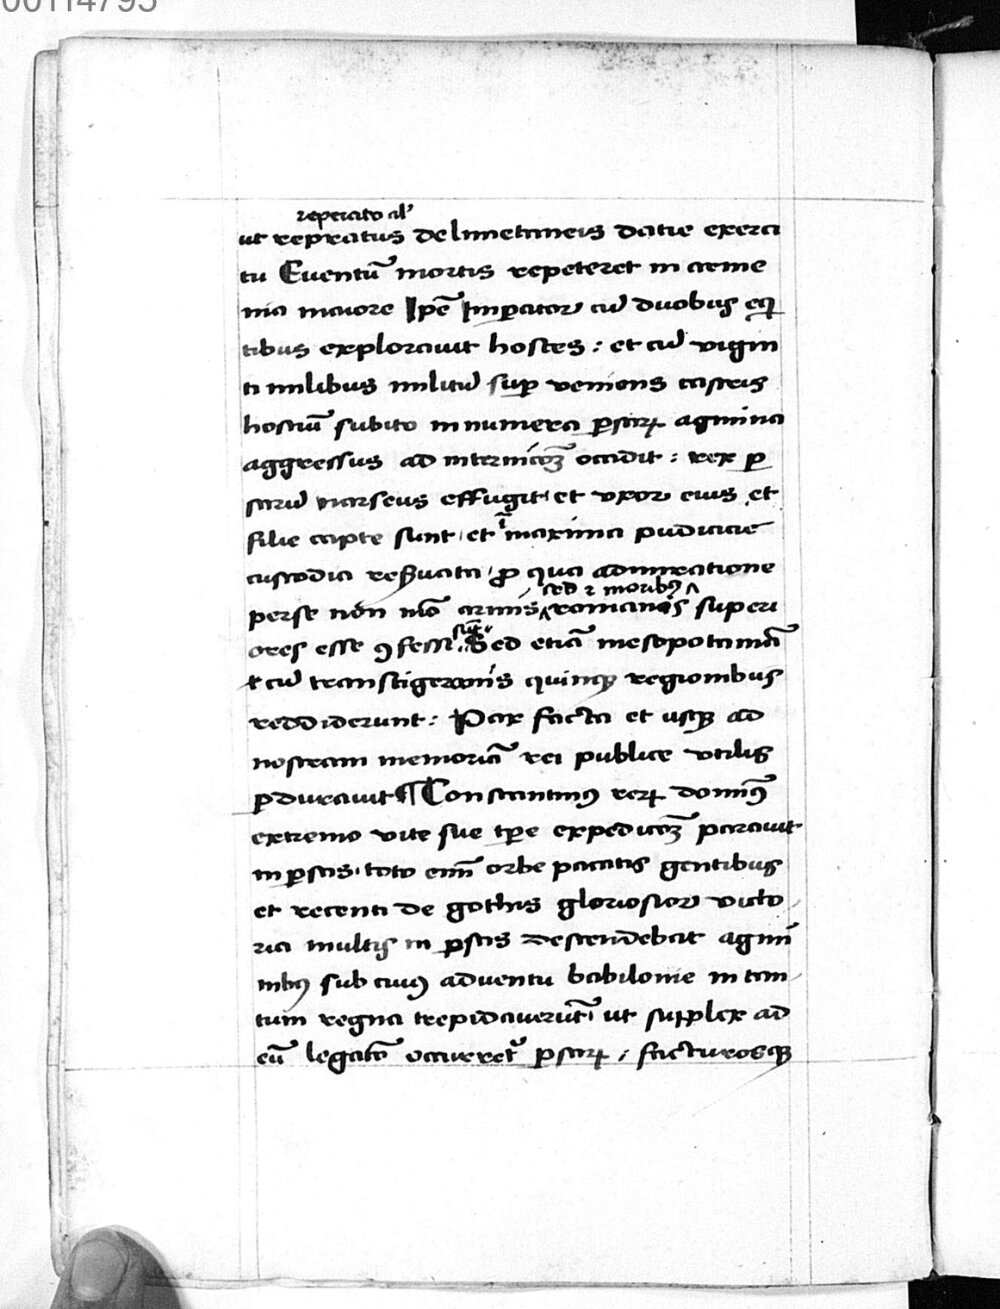 00114795
reperato al'
ut repratus de limetaneis datie exerci
tu Euentũ mortis repeteret in arme
nia maiore Ipẽ Imperator cũ duobus eq
tibus explorauit hostes : et cũ vigin
ti milibus militũ sup veniens castris
hostiũ subito innumera psarꝝ agmina
aggressus ad internicoꝫ occidit : rex p
sarũ narseus effugit et vxor eius et
filie capte sunt et i maxima pudicicie
custodia reseruata pro qua admiratione
sed ⁊ moribꝰ
perse non mo armis romanos superi
ores esse ꝯfessi sũt Sed etiã mesopotamiã
cũ transtigeranis quinqꝫ regionibus
reddiderunt : Pax facta et usqꝫ ad
nostram memoriã rei publice vtilis
perdurauit ¶ Constantinꝰ rerꝝ dominꝰ
extremo vite sue tpe expedicoꝫ parauit
in persas toto enĩ orbe pacatis gentibus
et recenti de gothis gloriosior victo
ria multis in persas descendebat agmi
nibꝰ sub cuiꝰ aduentu babilonie in tan
tum regna trepidauerũt ut supplex ad
eũ legatõ occurreret psarꝝ : facturosqꝫ